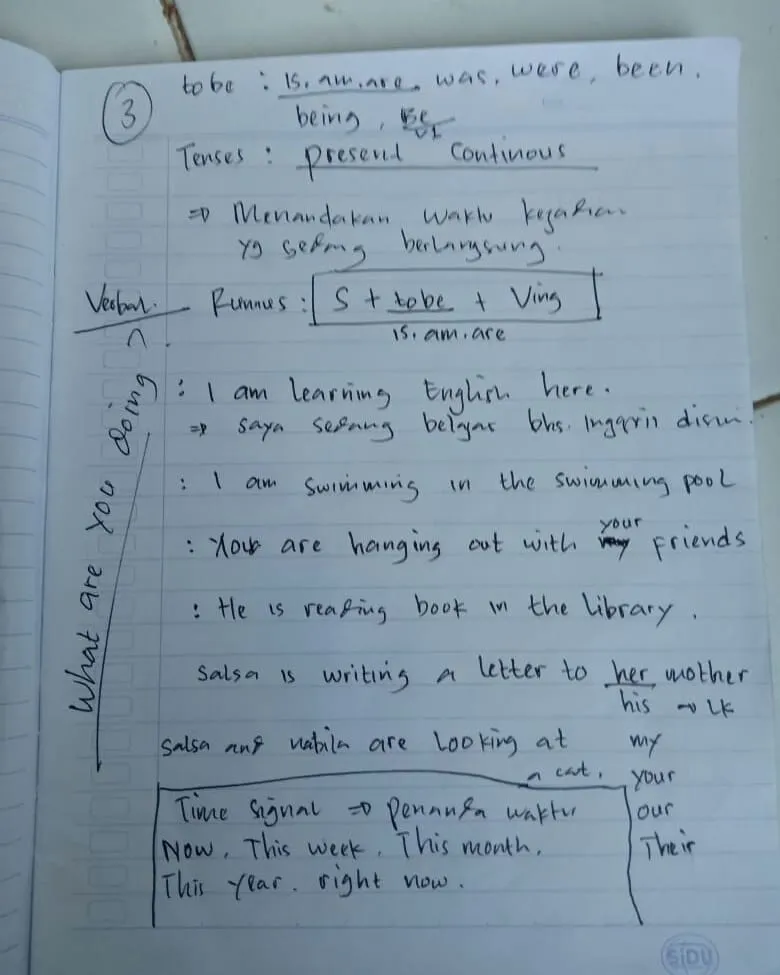 3
to be : is. am. are. was. were. been.
being, Be
V1
Tenses : present Continous
⇒ Menandakan waktu kejadian
yg sedang berlangsung.
Verbal. Rumus : S + tobe + Ving
is. am. are
What are you doing ?
: I am learning English here.
⇒ saya sedang belajar bhs. Inggris disini.
: I am swimming in the swimming pool
your
: You are hanging out with my friends
: He is reading book in the library.
Salsa is writing a letter to her mother
his → LK
Salsa and nabila are looking at my
a cat. your
Time signal ⇒ penanda waktu our
Now. This week. This month. Their
This year. right now.
SIDU